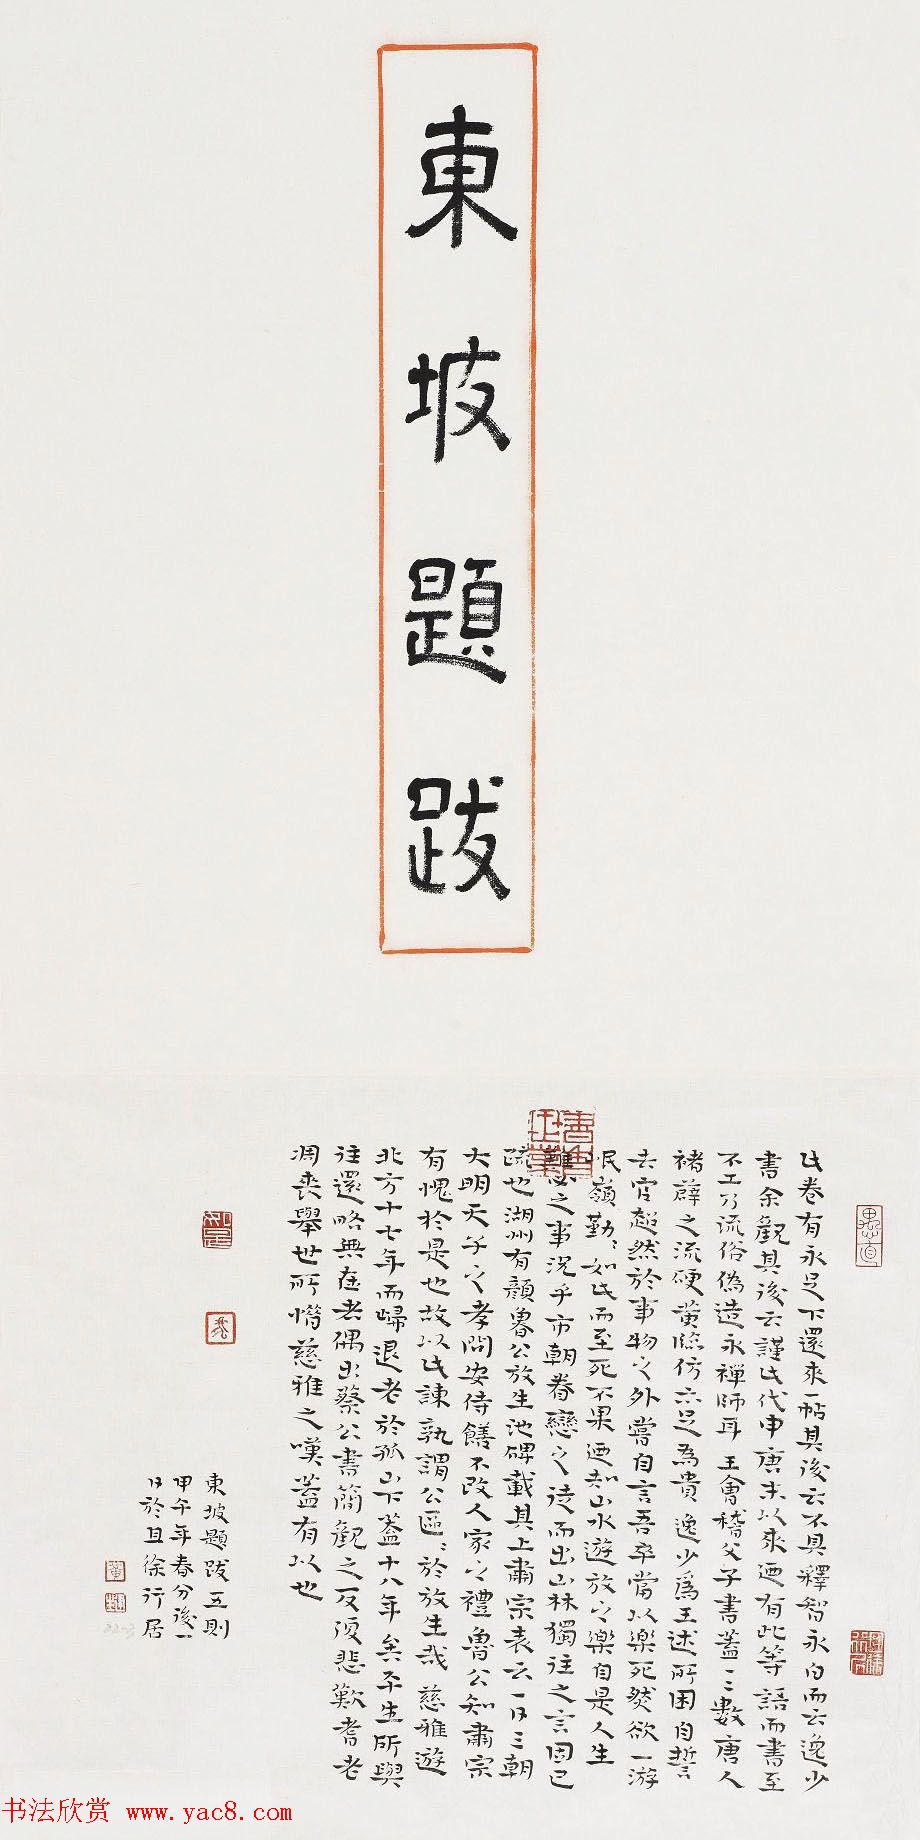 東坡題跋
此卷有永足下還來一帖其後云不具釋智永白而云逸少
書余觀其後云謹此代申唐末以來迺有此等語而書至
不工乃流俗偽造永禪師耳王會稽父子書蓋二二數唐人
褚薛之流硬黃臨仿亦足為貴逸少爲王述所困自誓
去官超然於事物之外嘗自言吾卒當以樂死然欲一游
岷嶺勤勤如此而至死不果迺知山水遊放之樂自是人生
難必之事況乎市朝眷戀之徒而出山林獨往之言固已
疏也湖州有顏魯公放生池碑載其上肅宗表云一日三朝
大明天子之孝問安侍饍不改人家之禮魯公知肅宗
有愧於是也故以此諫孰謂公區區於放生哉慈雅遊
北方十七年而歸退老於孤山下蓋十八年矣平生所與
往還略無在者偶出蔡公書簡觀之反復悲歎耆老
凋喪舉世所惜慈雅之嘆蓋有以也
東坡題跋五則
甲午年春分後一
日於且徐行居
书法欣赏 www.yac8.com